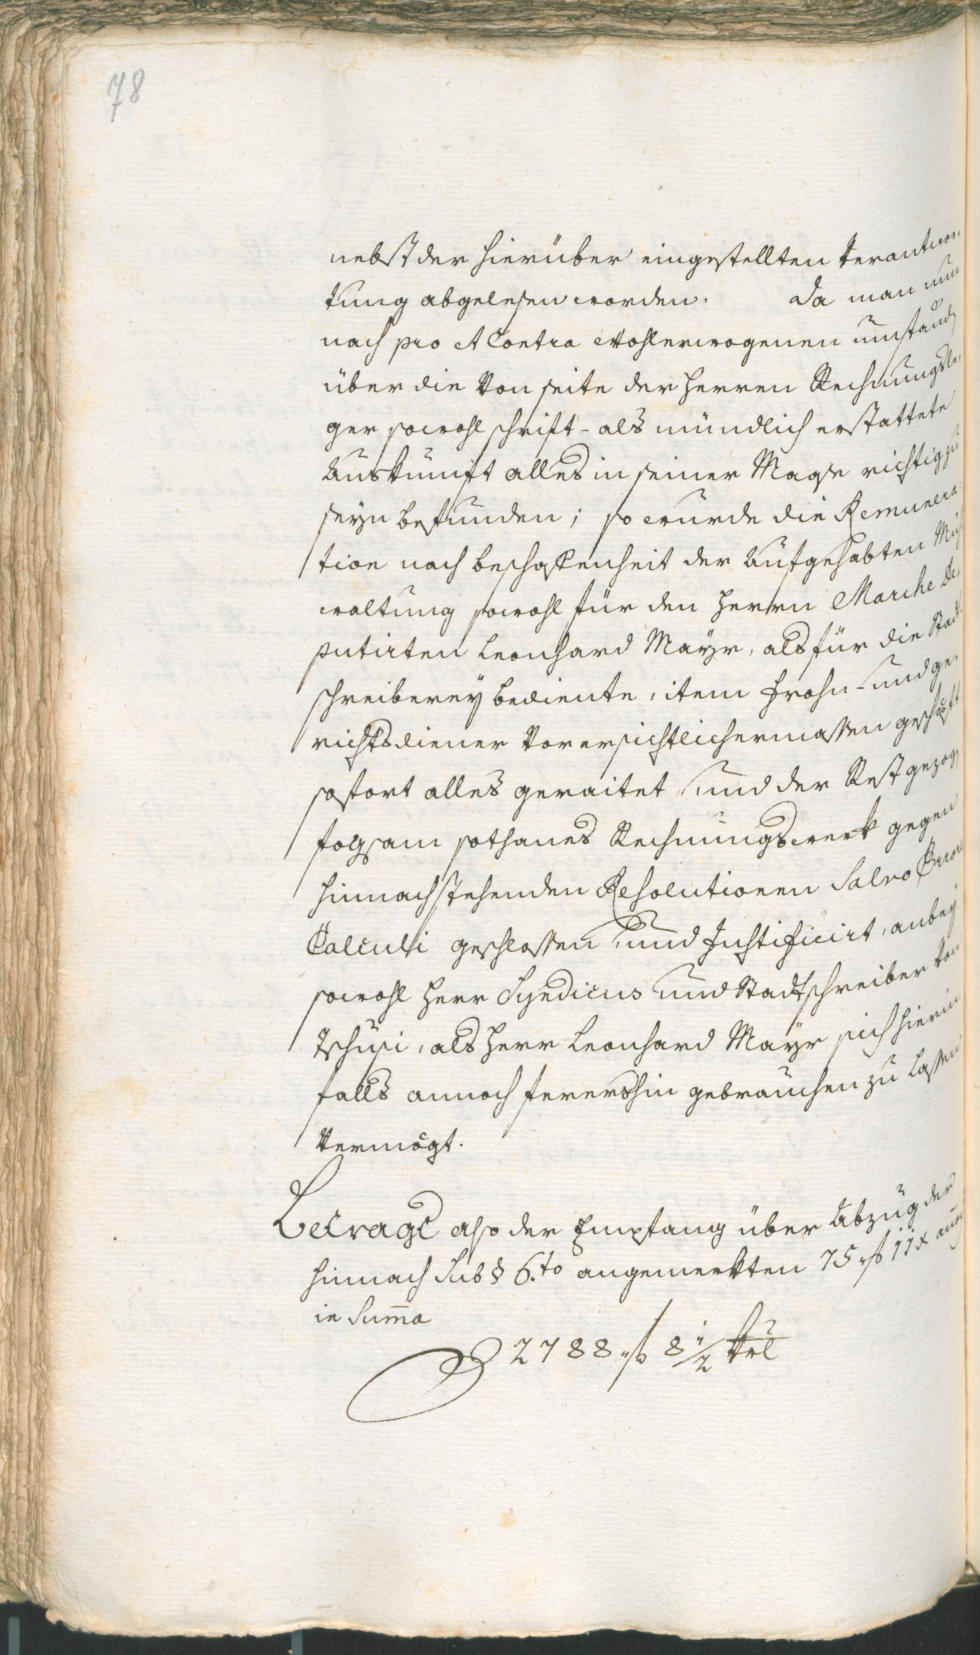 78
nebst der hierüber eingestellten Verantwor-
tung abgelesen worden. Da man nun
nach pro et Contra wohlerwogenen umständ
über die von seite der Herren Rechnungsle-
ger sowohl schrift- als mündlich erstattete
Auskunft alles in seiner Masse richtig zu
seyn befunden; so wurde die Remunera
tion nach beschaffenheit der Aufgehabten Müh
waltung sowohl für den Herrn Marche De-
putirten Leonhard Mayr, als für die Stadt
schreiberey bediente, item Frohn- und ge-
richtsdiener vorersichtlichermassen geschöpft
sofort alles geraitet und der Rest gezog
folgsam sothanes Rechnungswerk gegen
hinnachstehenden Resolutionen Salvo Errore
Calculi geschlossen und Justificirt, anbey
sowohl Herr Syndicus und Stadtschreiber von
Tschusi, als Herr Leonhard Mayr sich hierin
falls annoch fernershin gebrauchen zu lassen
vermögt.
Betragt also der Empfang über Abzug der
hinnach Sub § 6.to angemerkten 75 f 11 x
in Summa
2788 f 8 1/2